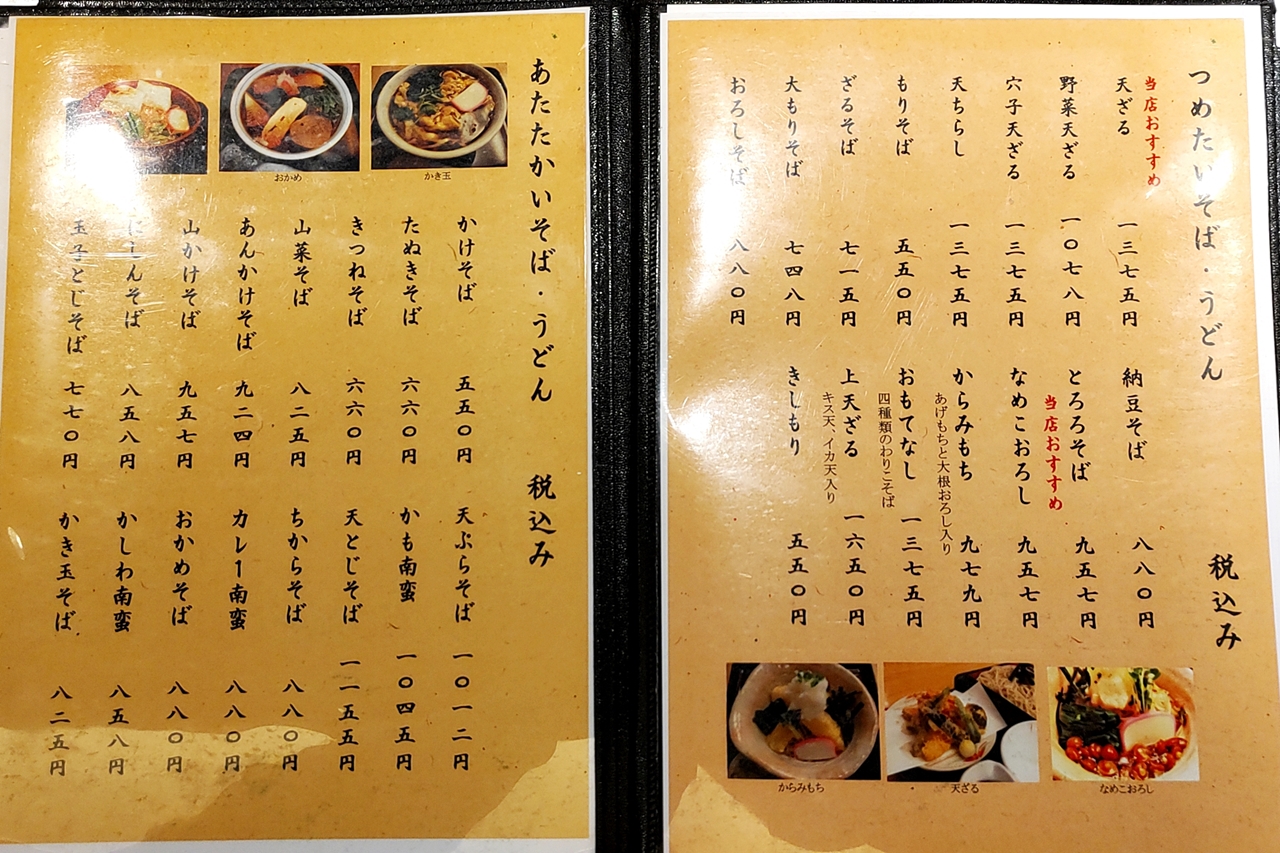 つめたいそば・うどん　税込み
当店おすすめ
天ざる　一三七五円
野菜天ざる　一〇七八円
穴子天ざる　一三七五円
天ちらし　一三七五円
もりそば　五五〇円
ざるそば　七一五円
大もりそば　七四八円
おろしそば　八八〇円
納豆そば　八八〇円
とろろそば　九五七円
当店おすすめ
なめこおろし　九五七円
からみもち　九七九円
あげもちと大根おろし入り
おもてなし　一三七五円
四種類のわりこそば
上天ざる　一六五〇円
キス天、イカ天入り
きしもり　五五〇円
なめこおろし
天ざる
からみもち
あたたかいそば・うどん　税込み
かき玉
おかめ
かけそば　五五〇円
たぬきそば　六六〇円
きつねそば　六六〇円
山菜そば　八二五円
あんかけそば　九二四円
山かけそば　九五七円
にしんそば　八五八円
玉子とじそば　七七〇円
天ぷらそば　一〇一二円
かも南蛮　一〇四五円
天とじそば　一一五五円
ちからそば　八八〇円
カレー南蛮　八八〇円
おかめそば　八八〇円
かしわ南蛮　八五八円
かき玉そば　八二五円